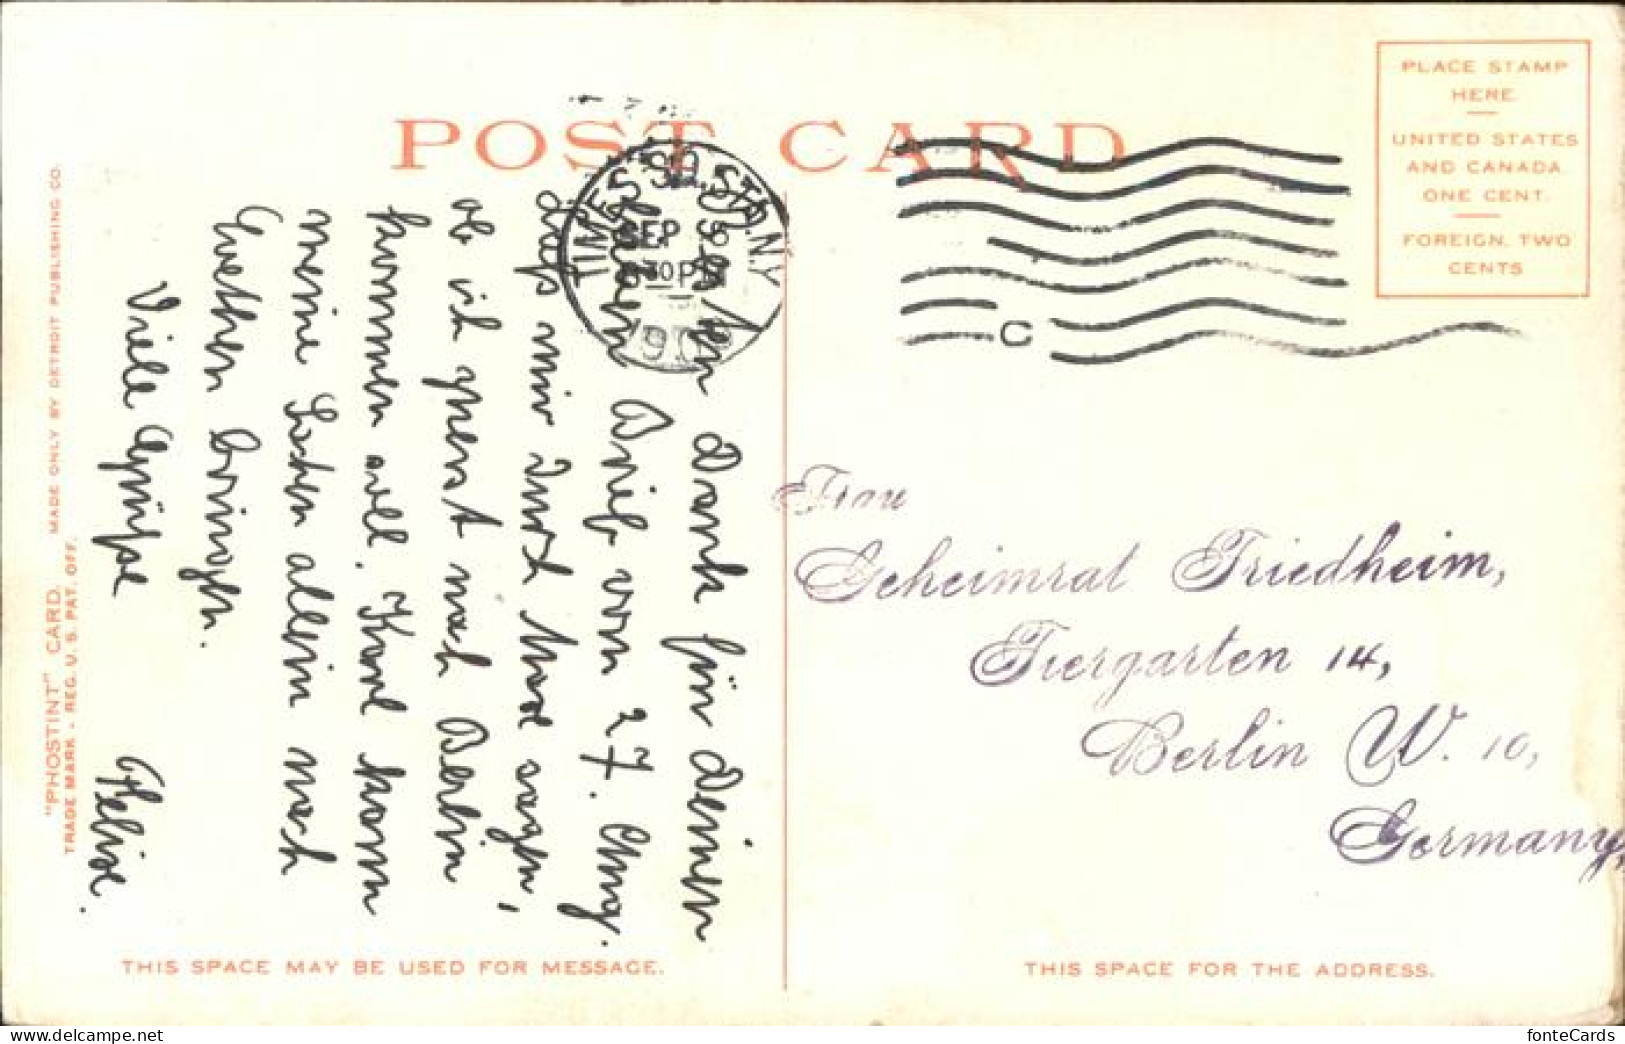 POST CARD
PLACE STAMP
HERE.
UNITED STATES
AND CANADA
ONE CENT.
FOREIGN. TWO
CENTS
TIMES SQ. STA. N.Y.
SEP
30 PM
C
Dank für Deinen
Brief vom 27. Aug.
mir
ob ich zuerst nach Berlin
kommen soll. Karl kann
meine Sachen allein nach
bringen.
Viele Grüße
Felix.
Frau
Geheimrat Friedheim,
Tiergarten 14,
Berlin W. 10,
Germany,
"PHOSTINT" CARD. MADE ONLY BY DETROIT PUBLISHING CO.
TRADE MARK - REG. U. S. PAT. OFF.
THIS SPACE MAY BE USED FOR MESSAGE.
THIS SPACE FOR THE ADDRESS.
delcampe.net
fonteCards